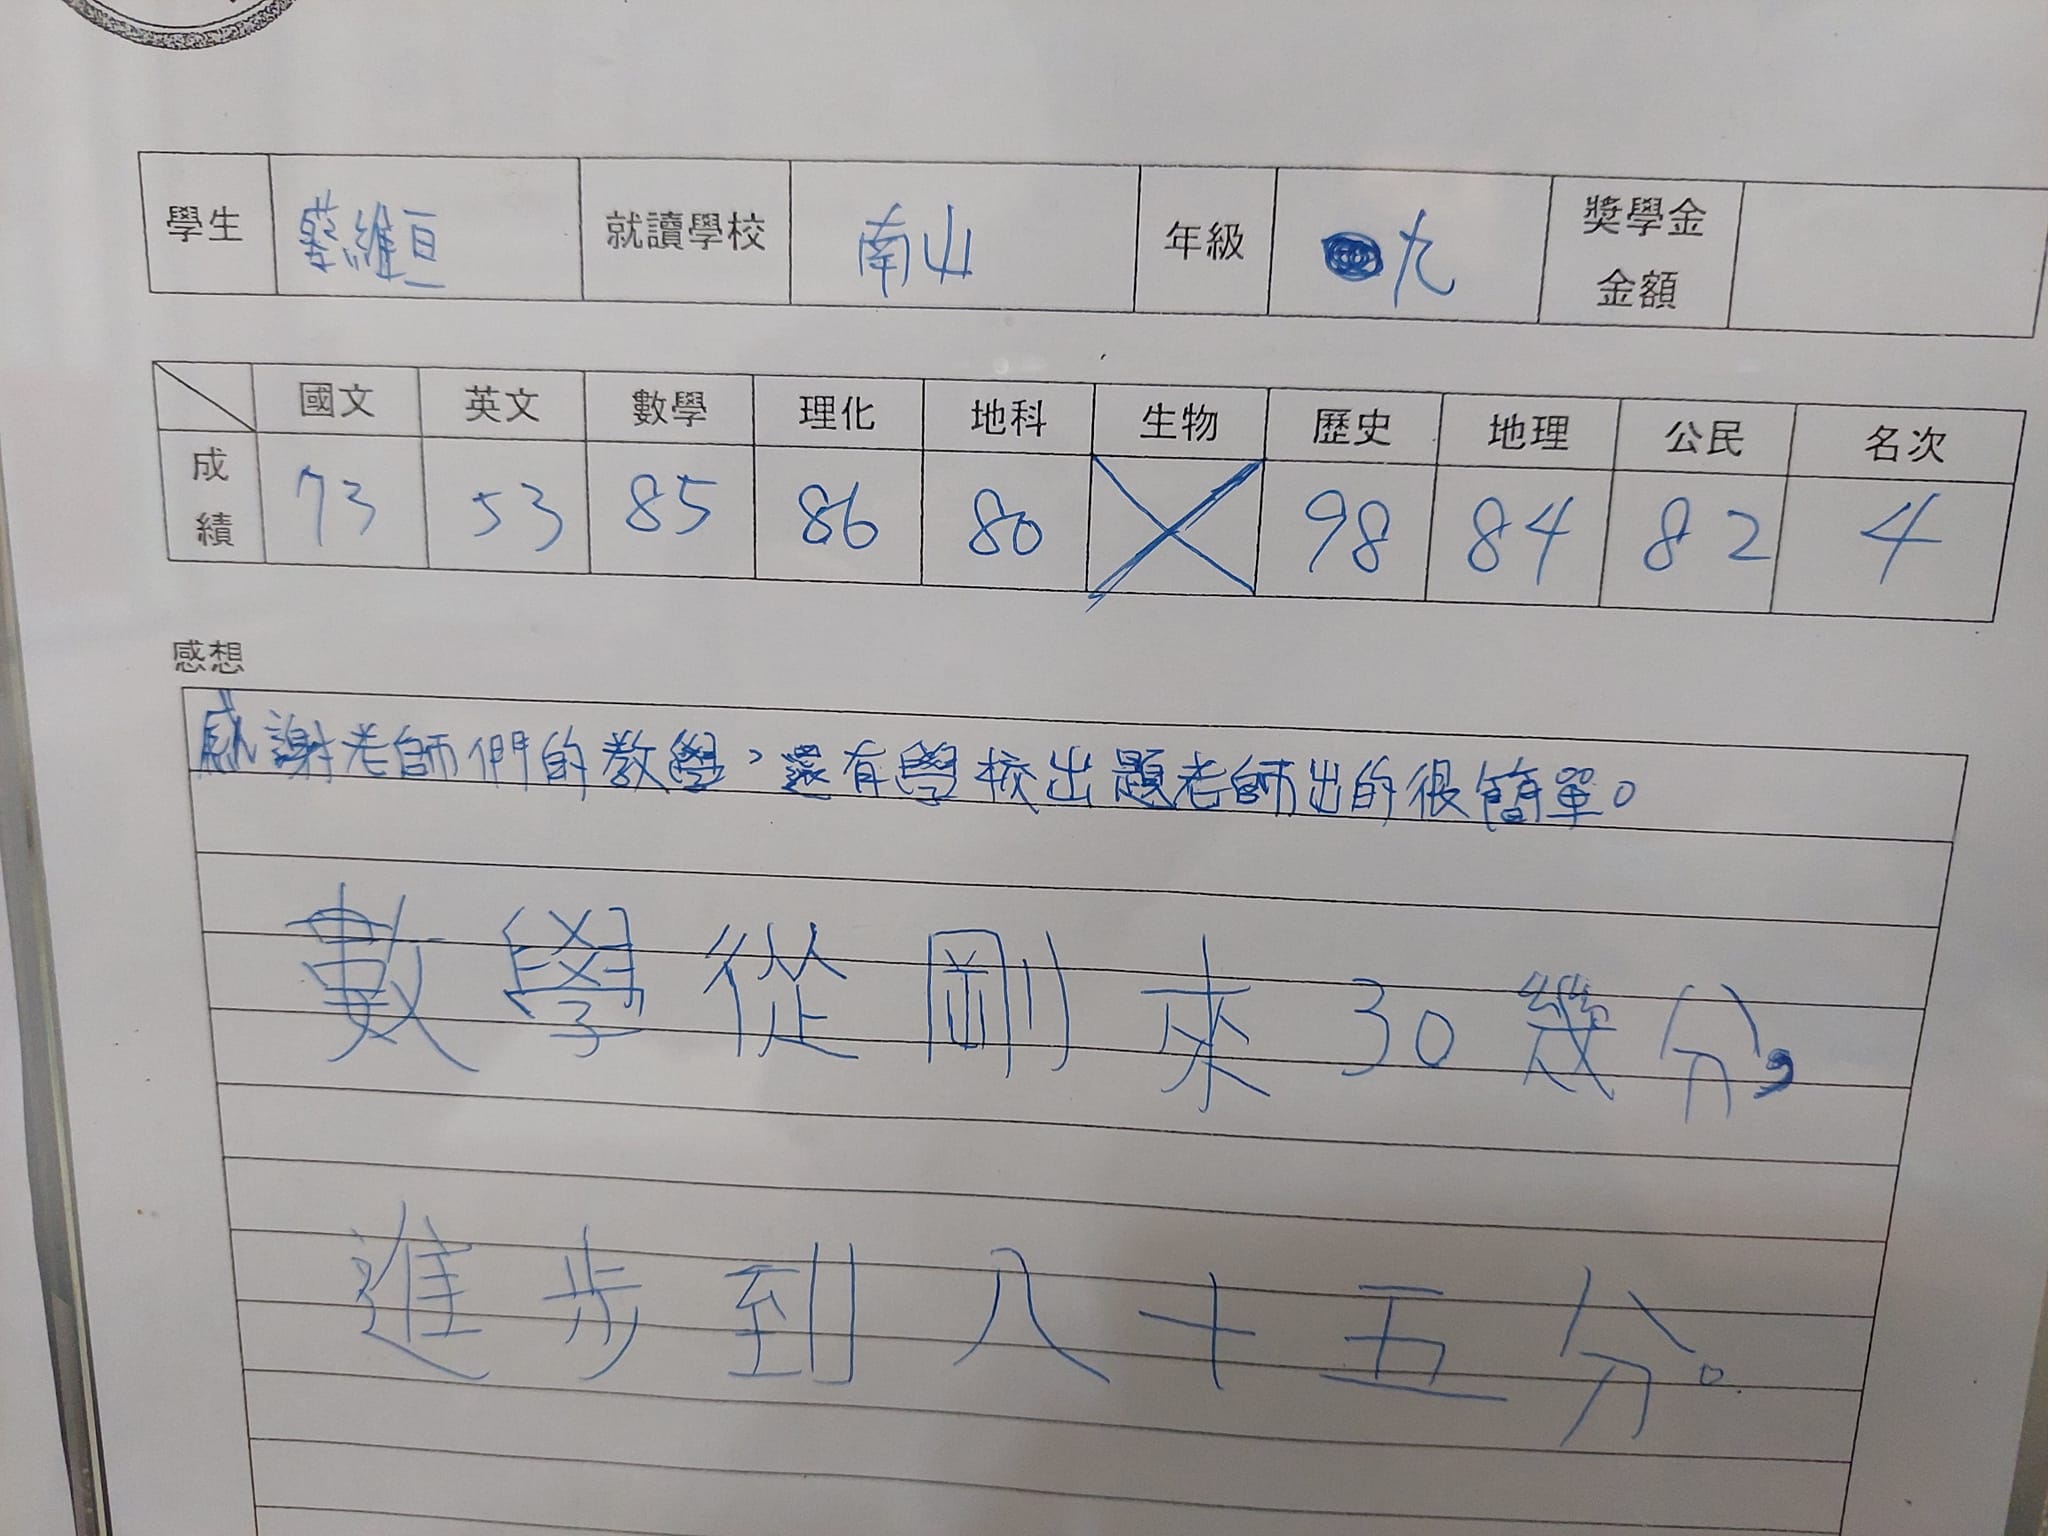 學生 蔡維亘 就讀學校 南山 年級 九 獎學金金額
國文 英文 數學 理化 地科 生物 歷史 地理 公民 名次
成績 73 53 85 86 80 98 84 82 4
感想
感謝老師們的教學，還有學校出題老師出的很簡單。
數學從剛來30幾分，
進步到八十五分。